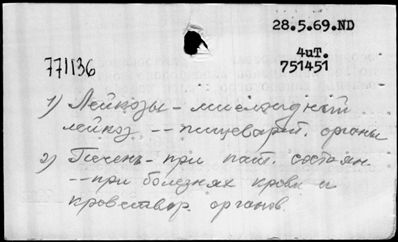 28.5.69.ND
771136
4иТ.
751451
1) Лейкозы - миелоидный
лейкоз -- пищеварит. органы
2) Печень - при пат. состоян.
-- при болезнях крови и
кроветвор. органов.